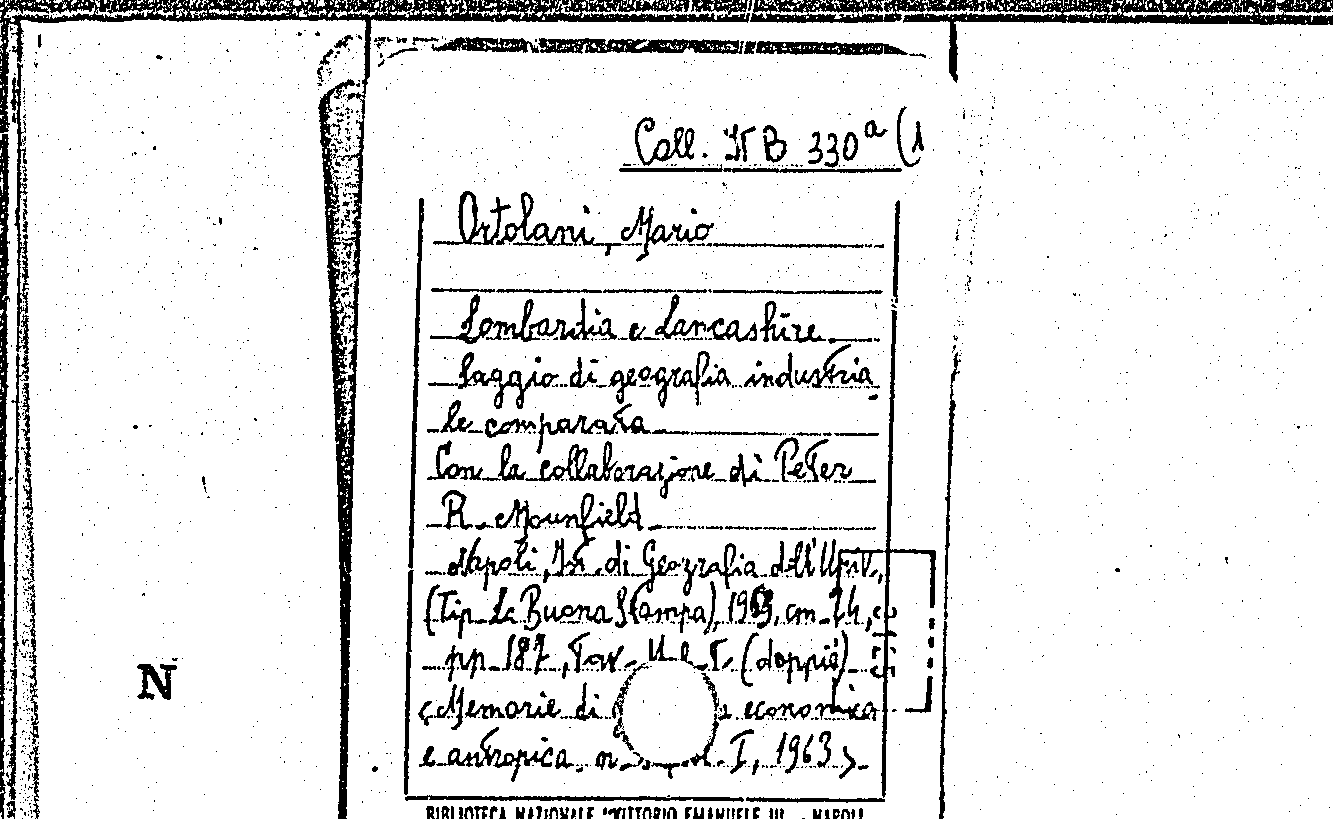 Coll. B 330ª (1
Ortolani, Mario
Lombardia e Lancashire.
Saggio di geografia industria
le comparata
Con la collaborazione di Peter
R. Mounfield
Napoli, Ist. di Geografia dell'Univ.,
(Tip. La Buona Stampa), cm. 24,
pp. 187, Tav. (doppie)
<Memorie di economica
e antropica. n. I, 1963>
BIBLIOTECA NAZIONALE "VITTORIO EMANUELE III" - NAPOLI
N